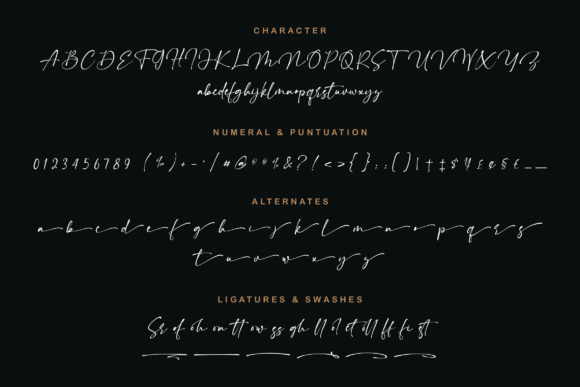 CHARACTER
ABCDEFGHIJKLMNOPQRSTUVWXYZ
abcdefghijklmnopqrstuvwxyz
NUMERAL & PUNTUATION
0123456789 (%)+-·/#@&?!<>{}:;[]|†‡$¥£¢§€__
ALTERNATES
a b c d e f g h i j k l m n o p q r s
t u v w x y z
LIGATURES & SWASHES
Sr of oh on tt ow ss gh ll ol et ill ff fi st